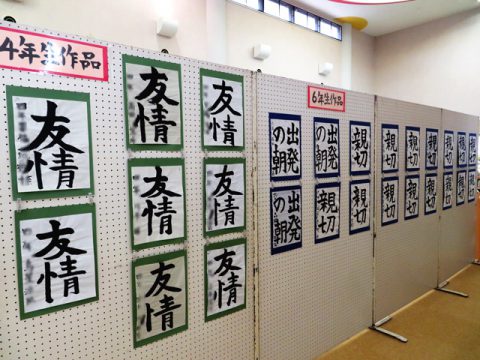 4年生作品
友情
友情
友情
友情
友情
友情
友情
友情
6年生作品
出発
の朝
出発
の朝
親切
親切
親切
親切
親切
親切
親切
出発
の朝
親切
親切
親切
親切
親切
親切
親切
親切